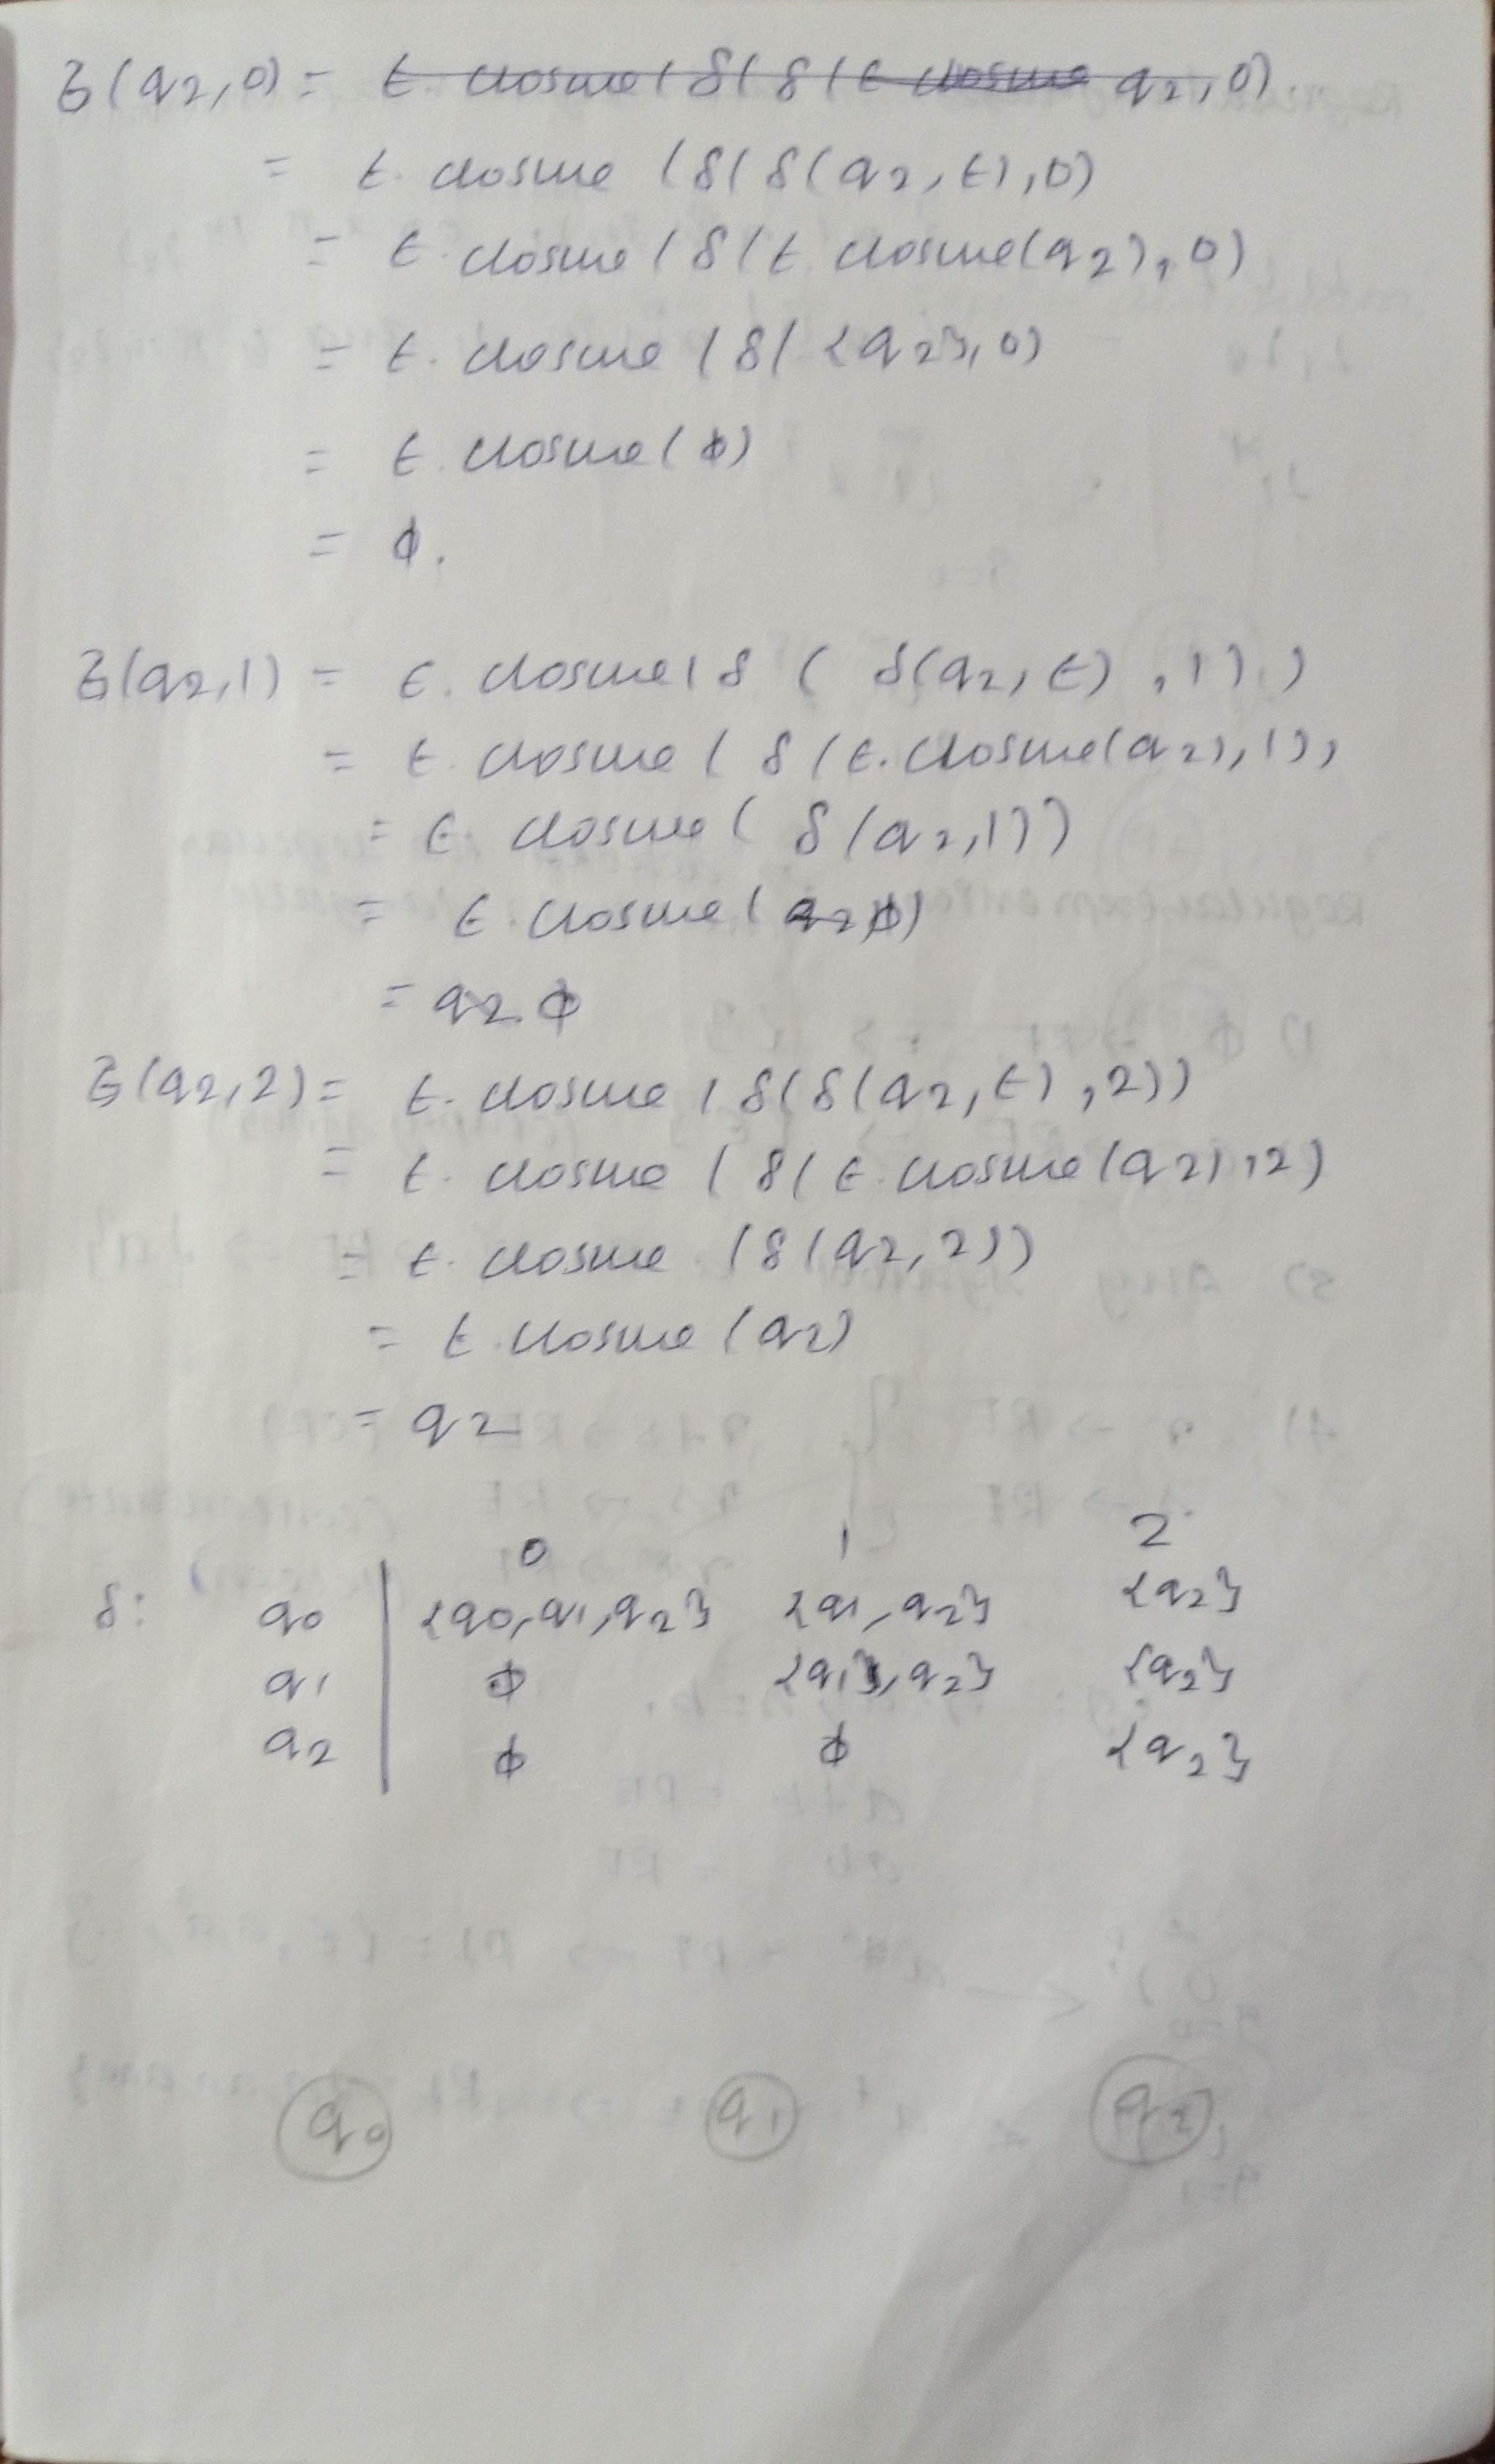 δ̂(q2,0) = ε. closure(δ(δ(ε closure q2,0)
= ε. closure (δ(δ(q2,ε),0)
= ε. closure (δ(ε. closure(q2),0)
= ε. closure (δ({q2},0)
= ε. closure(ϕ)
= ϕ.
δ̂(q2,1) = ε. closure(δ ( δ(q2,ε) ,1) )
= ε. closure ( δ(ε. closure(q2),1),
= ε. closure( δ(q2,1))
= ε. closure(q2ϕ)
= q2 ϕ
δ̂(q2,2) = ε. closure (δ(δ(q2,ε) ,2))
= ε. closure (δ(ε. closure(q2),2)
= ε. closure (δ(q2,2))
= ε. closure (q2)
= q2
0 1 2
δ: q0 {q0,q1,q2} {q1,q2} {q2}
q1 ϕ {q1,q2} {q2}
q2 ϕ ϕ {q2}
q0 q1 q2